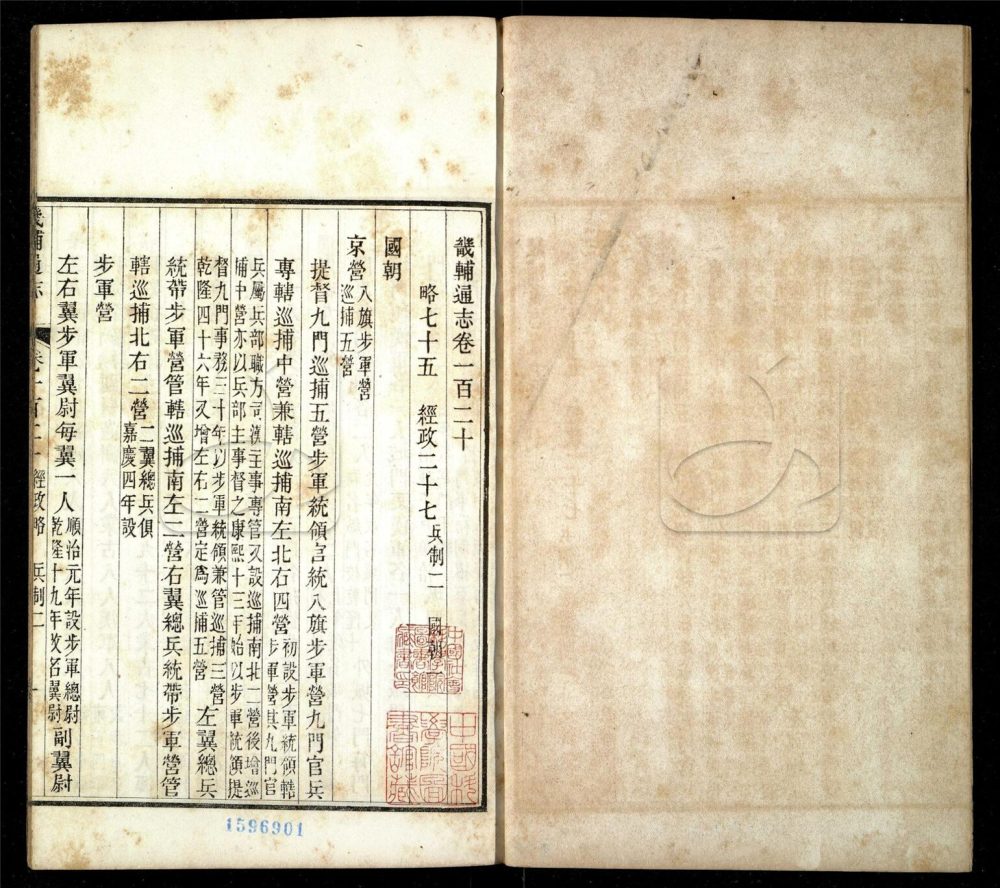 畿輔通志卷一百二十
略七十五　經政二十七　兵制二　國朝
國朝
京營　八旗步軍營
巡捕五營
提督九門巡捕五營步軍統領言統八旗步軍營九門官兵
專轄巡捕中營兼轄巡捕南左北右四營　初設步軍統領轄
步軍營其九門官
兵屬兵部職方司漢主事專管又設巡捕南北二營後增巡
捕中營亦以兵部主事督之康熙十三年始以步軍統領提
督九門事務三十年以步軍統領兼管巡捕三營
乾隆四十六年又增左右二營定爲巡捕五營　左翼總兵
統帶步軍營管轄巡捕南左二營右翼總兵統帶步軍營管
轄巡捕北右二營　二翼總兵俱
嘉慶四年設
步軍營
左右翼步軍翼尉每翼一人　順治元年設步軍總尉
乾隆十九年改名翼尉　副翼尉
畿輔通志　卷一百二十　經政略　兵制二　一
中國科
學院圖
書館藏
1596901